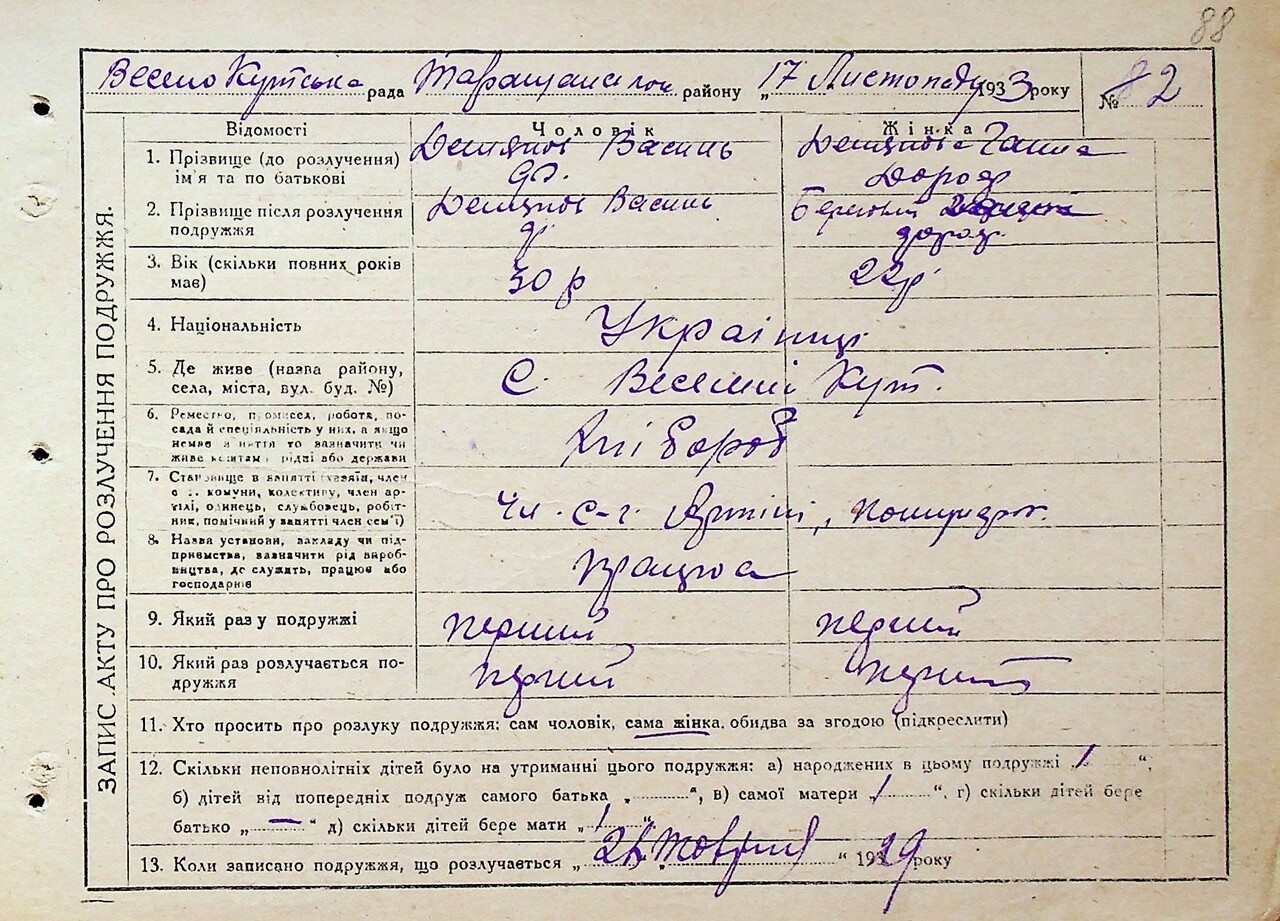 88
Весело Кутська рада Таращанськ. району „17 Листопаду 1933 року № 82
ЗАПИС АКТУ ПРО РОЗЛУЧЕННЯ ПОДРУЖЖЯ.
Відомості Чоловік Жінка
1. Прізвище (до розлучення) Василь Ганна
ім'я та по батькові Дороф
2. Прізвище після розлучення Василь
подружжя дороф.
3. Вік (скільки повних років 30 р 22 р
має)
4. Національність Українці
5. Де живе (назва району, С. Веселий Кут.
села, міста, вул. буд. №)
6. Ремество, промисел, робота, по-
сада й спеціяльність у них, а якщо Хлібороб
немає заняття то зазначити чи
живе коштам рідні або держави
7. Становище в занятті (хазяїн, член
с. г. комуни, колективу, член ар- Чл. с-г. Артілі,
тілі, одинець, службовець, робіт-
ник, помічний у занятті член сем'ї)
8. Назва установи, закладу чи під-
приємства, зазначити рід вироб- працює
ництва, де служить, працює або
господарює
9. Який раз у подружжі перший перший
10. Який раз розлучається по- перший перший
дружжя
11. Хто просить про розлуку подружжя: сам чоловік, сама жінка, обидва за згодою (підкреслити)
12. Скільки неповнолітніх дітей було на утриманні цього подружжя: а) народжених в цьому подружжі „ 1 “,
б) дітей від попередніх подруж самого батька „ “, в) самої матери „ / “, г) скільки дітей бере
батько „ — “ д) скільки дітей бере мати „ 1 “
13. Коли записано подружжя, що розлучається „ “ 1929 року